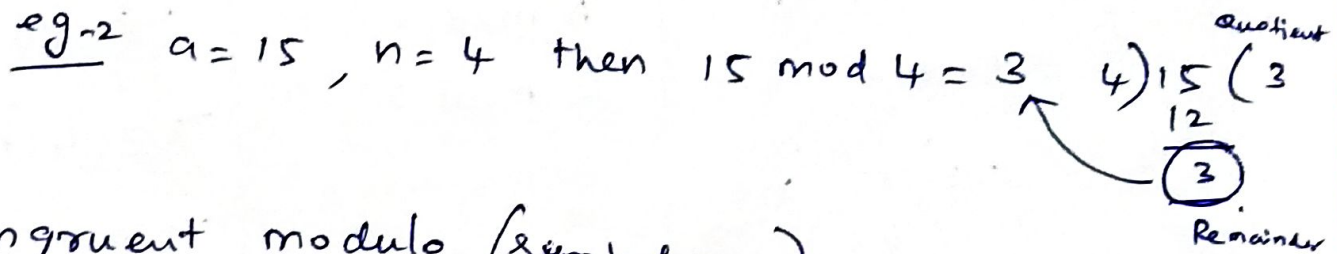 eg-2 a = 15, n = 4 then 15 mod 4 = 3
Quotient
4)15(3
12
3
Remainder
ngruent modulo